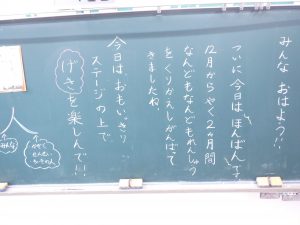 みんな おはよう!!
ついに今日はほんばんです。
12月からやく2ヶ月間
なんどもなんどもれんしゅう
をくりかえしがんばって
きましたね。
今日は、おもいっきり
ステージの上で
げきを楽しんで!!
みんな